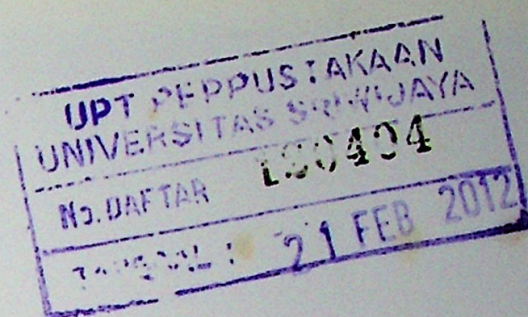 UPT PERPUSTAKAAN
UNIVERSITAS SRIWIJAYA
No. DAFTAR
TANGGAL : 21 FEB 2012